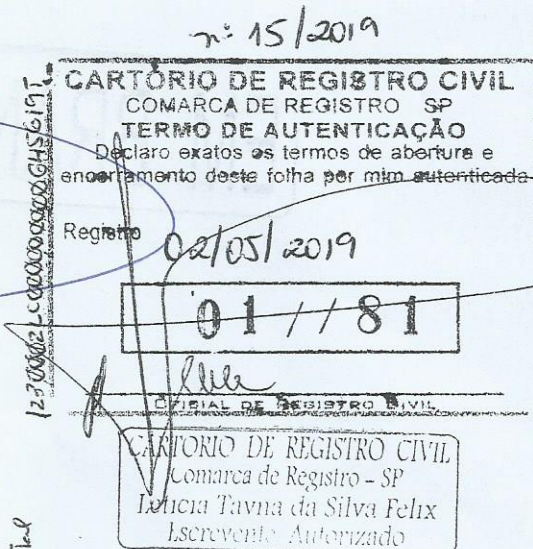 nº 15/2019
CARTÓRIO DE REGISTRO CIVIL
COMARCA DE REGISTRO SP
TERMO DE AUTENTICAÇÃO
Declaro exatos os termos de abertura e
encerramento deste folha por mim autenticada
Registro 02/05/2019
01 // 81
OFICIAL DE REGISTRO CIVIL
CARTORIO DE REGISTRO CIVIL
Comarca de Registro - SP
Letícia Tavna da Silva Felix
Escrevente Autorizado